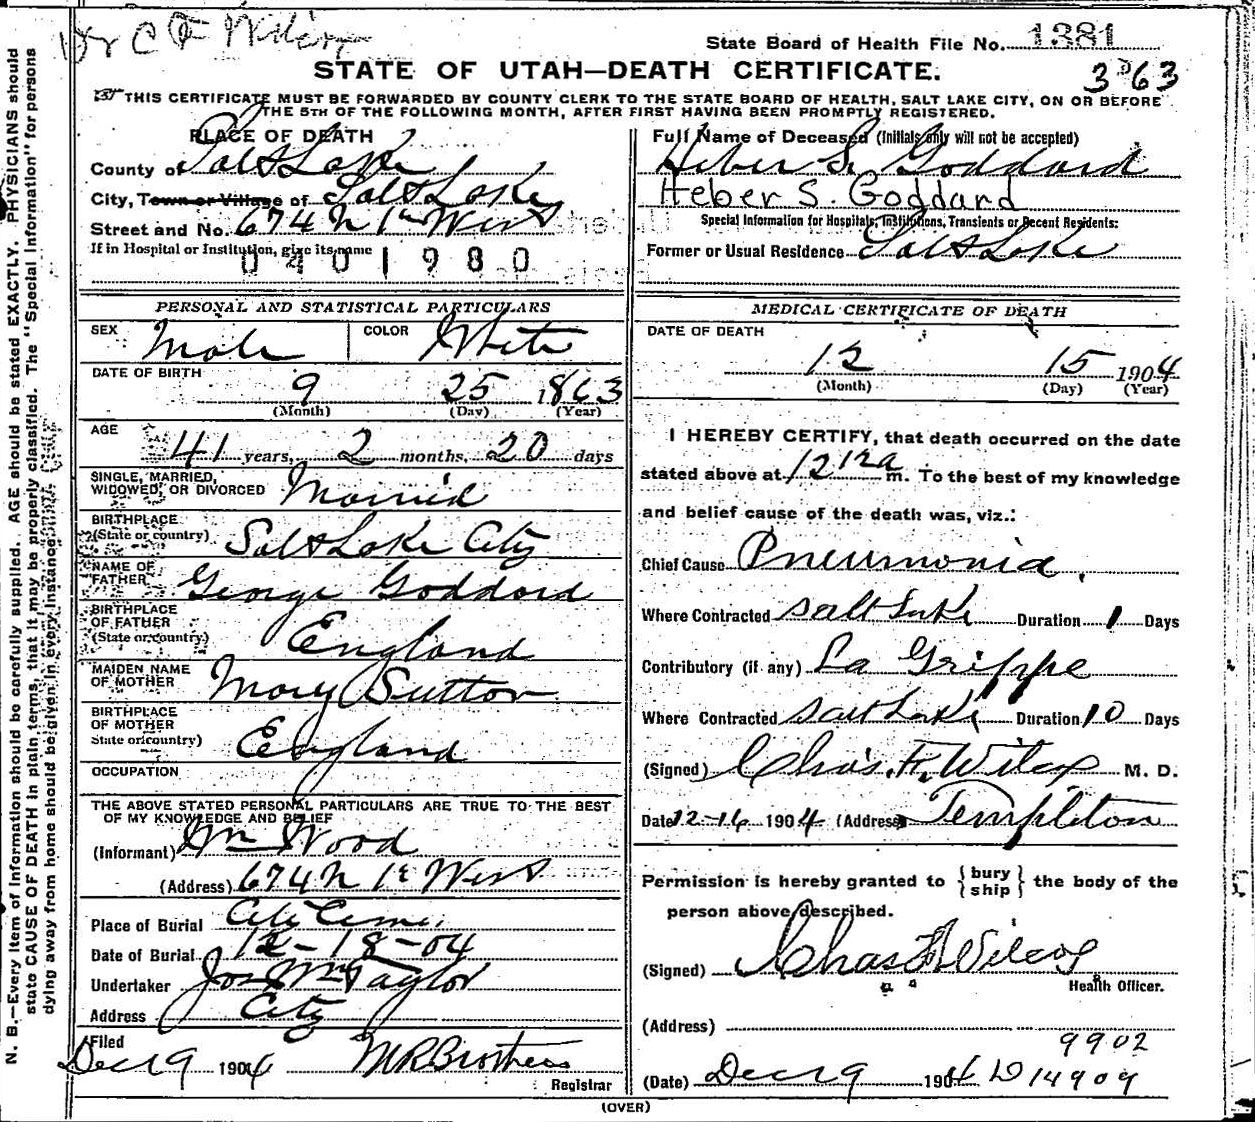 Dr C F Wilcox
State Board of Health File No. 1381
STATE OF UTAH—DEATH CERTIFICATE.
3363
THIS CERTIFICATE MUST BE FORWARDED BY COUNTY CLERK TO THE STATE BOARD OF HEALTH, SALT LAKE CITY, ON OR BEFORE
THE 5TH OF THE FOLLOWING MONTH, AFTER FIRST HAVING BEEN PROMPTLY REGISTERED.
PLACE OF DEATH
County of Salt Lake
City, Town or Village of Salt Lake
Street and No. 674 N 1st West
If in Hospital or Institution, give its name
0401980
Full Name of Deceased (Initials only will not be accepted)
Heber S. Goddard
Heber S. Goddard
Special Information for Hospitals, Institutions, Transients or Recent Residents:
Former or Usual Residence Salt Lake
PERSONAL AND STATISTICAL PARTICULARS
SEX Male COLOR White
DATE OF BIRTH
9 25 1863
(Month) (Day) (Year)
AGE
41 years, 2 months, 20 days
SINGLE, MARRIED,
WIDOWED, OR DIVORCED Married
BIRTHPLACE
(State or country) Salt Lake City
NAME OF
FATHER George Goddard
BIRTHPLACE
OF FATHER
(State or country) England
MAIDEN NAME
OF MOTHER Mary Sutton
BIRTHPLACE
OF MOTHER
State or country) England
OCCUPATION
THE ABOVE STATED PERSONAL PARTICULARS ARE TRUE TO THE BEST
OF MY KNOWLEDGE AND BELIEF
(Informant) Wm Wood
(Address) 674 N 1st West
Place of Burial City Cem.
Date of Burial 12-18-04
Undertaker Jos Wm Taylor
Address City
Filed
Dec 19 1904
Registrar
MEDICAL CERTIFICATE OF DEATH
DATE OF DEATH
12 15 1904
(Month) (Day) (Year)
I HEREBY CERTIFY, that death occurred on the date
stated above at 12 12 a m. To the best of my knowledge
and belief cause of the death was, viz.:
Chief Cause Pneumonia.
Where Contracted Salt Lake Duration 1 Days
Contributory (if any) La Grippe
Where Contracted Salt Lake Duration 10 Days
(Signed) Chas. F. Wilcox M. D.
Date 12-16 1904 (Address Templeton
Permission is hereby granted to {bury ship} the body of the
person above described.
(Signed) Chas F Wilcox
Health Officer.
(Address)
9902
(Date) Dec 19 1904 D 14909
(OVER)
N. B.—Every item of information should be carefully supplied. AGE should be stated EXACTLY. PHYSICIANS should
state CAUSE OF DEATH in plain terms, that it may be properly classified. The "Special Information" for persons
dying away from home should be given in every instance.